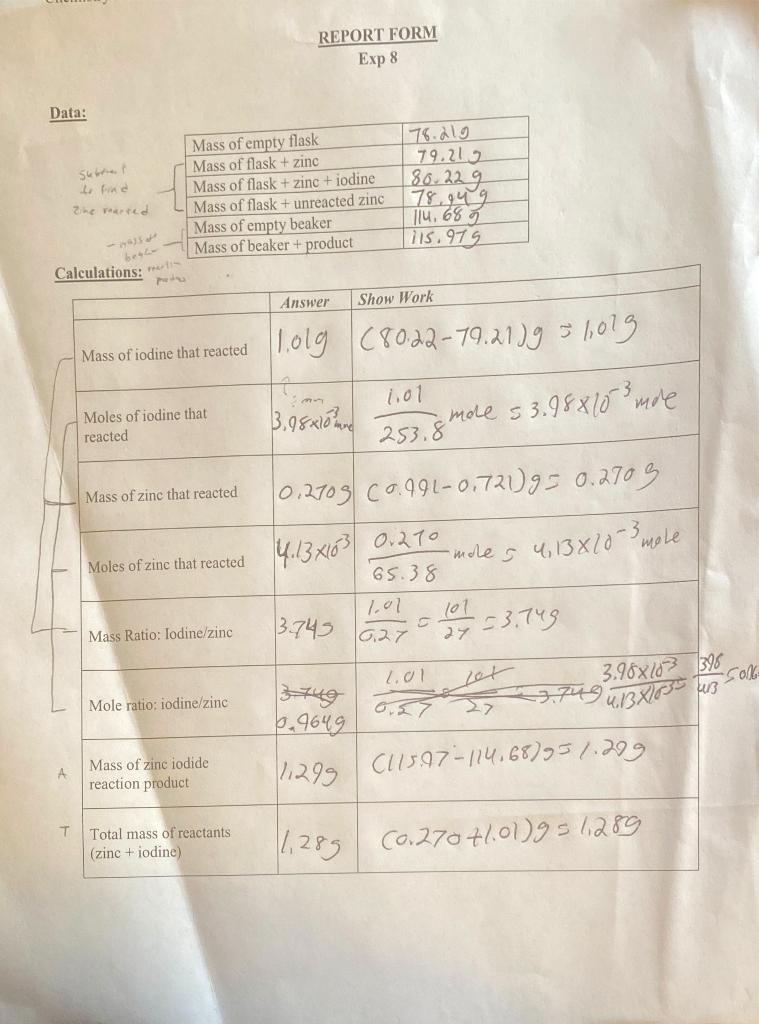 REPORT FORM
Exp 8
Data:
Mass of empty flask 78.21g
Mass of flask + zinc 79.21g
Mass of flask + zinc + iodine 80.22g
Mass of flask + unreacted zinc 78.94g
Mass of empty beaker 114.68g
Mass of beaker + product 115.97g
Subtract
to find
zinc reacted
- mass of
Calculations:
Answer Show Work
Mass of iodine that reacted 1.01g (80.22-79.21)g = 1.01g
Moles of iodine that
reacted
3.98x10⁻³ mole 1.01/253.8 mole = 3.98x10⁻³ mole
Mass of zinc that reacted 0.270g (0.991-0.721)g = 0.270g
Moles of zinc that reacted 4.13x10⁻³ 0.270/65.38 mole = 4.13x10⁻³ mole
Mass Ratio: Iodine/zinc 3.74g 1.01/0.27 = 101/27 = 3.74g
Mole ratio: iodine/zinc 3.74g 1.01/0.27 = 101/27 = 3.74g 3.98x10⁻³/4.13x10⁻³ = 398/413
0.964g
A Mass of zinc iodide
reaction product
1.29g (115.97-114.68)g = 1.29g
T Total mass of reactants
(zinc + iodine)
1.28g (0.270+1.01)g = 1.28g